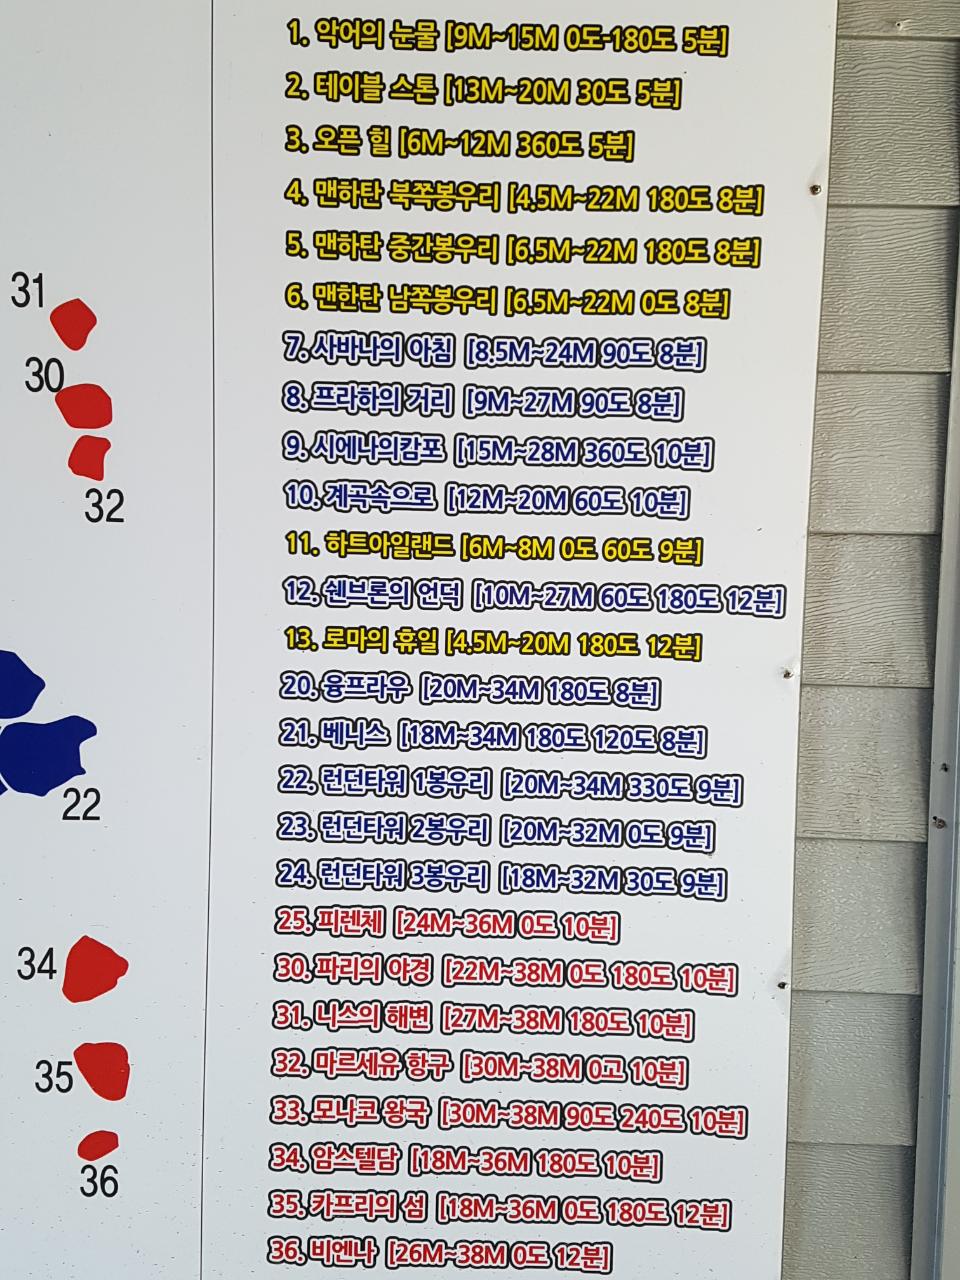 1. 악어의 눈물 [9M~15M 0도-180도 5분]
2. 테이블 스톤 [13M~20M 30도 5분]
3. 오픈 힐 [6M~12M 360도 5분]
4. 맨하탄 북쪽봉우리 [4.5M~22M 180도 8분]
5. 맨하탄 중간봉우리 [6.5M~22M 180도 8분]
6. 맨한탄 남쪽봉우리 [6.5M~22M 0도 8분]
7. 사바나의 아침 [8.5M~24M 90도 8분]
8. 프라하의 거리 [9M~27M 90도 8분]
9. 시에나의캄포 [15M~28M 360도 10분]
10. 계곡속으로 [12M~20M 60도 10분]
11. 하트아일랜드 [6M~8M 0도 60도 9분]
12. 쉔브론의 언덕 [10M~27M 60도 180도 12분]
13. 로마의 휴일 [4.5M~20M 180도 12분]
20. 융프라우 [20M~34M 180도 8분]
21. 베니스 [18M~34M 180도 120도 8분]
22. 런던타워 1봉우리 [20M~34M 330도 9분]
23. 런던타워 2봉우리 [20M~32M 0도 9분]
24. 런던타워 3봉우리 [18M~32M 30도 9분]
25. 피렌체 [24M~36M 0도 10분]
30. 파리의 야경 [22M~38M 0도 180도 10분]
31. 니스의 해변 [27M~38M 180도 10분]
32. 마르세유 항구 [30M~38M 0고 10분]
33. 모나코 왕국 [30M~38M 90도 240도 10분]
34. 암스텔담 [18M~36M 180도 10분]
35. 카프리의 섬 [18M~36M 0도 180도 12분]
36. 비엔나 [26M~38M 0도 12분]
31
30
32
22
34
35
36